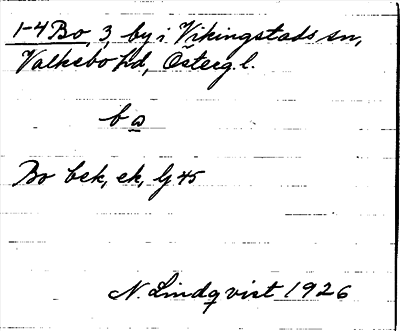 1-4 Bo, 3, by i Vikingstads sn,
Valkebo hd, Österg. l.
bo
Bo bek, ek, lj 45
N. Lindqvist 1926